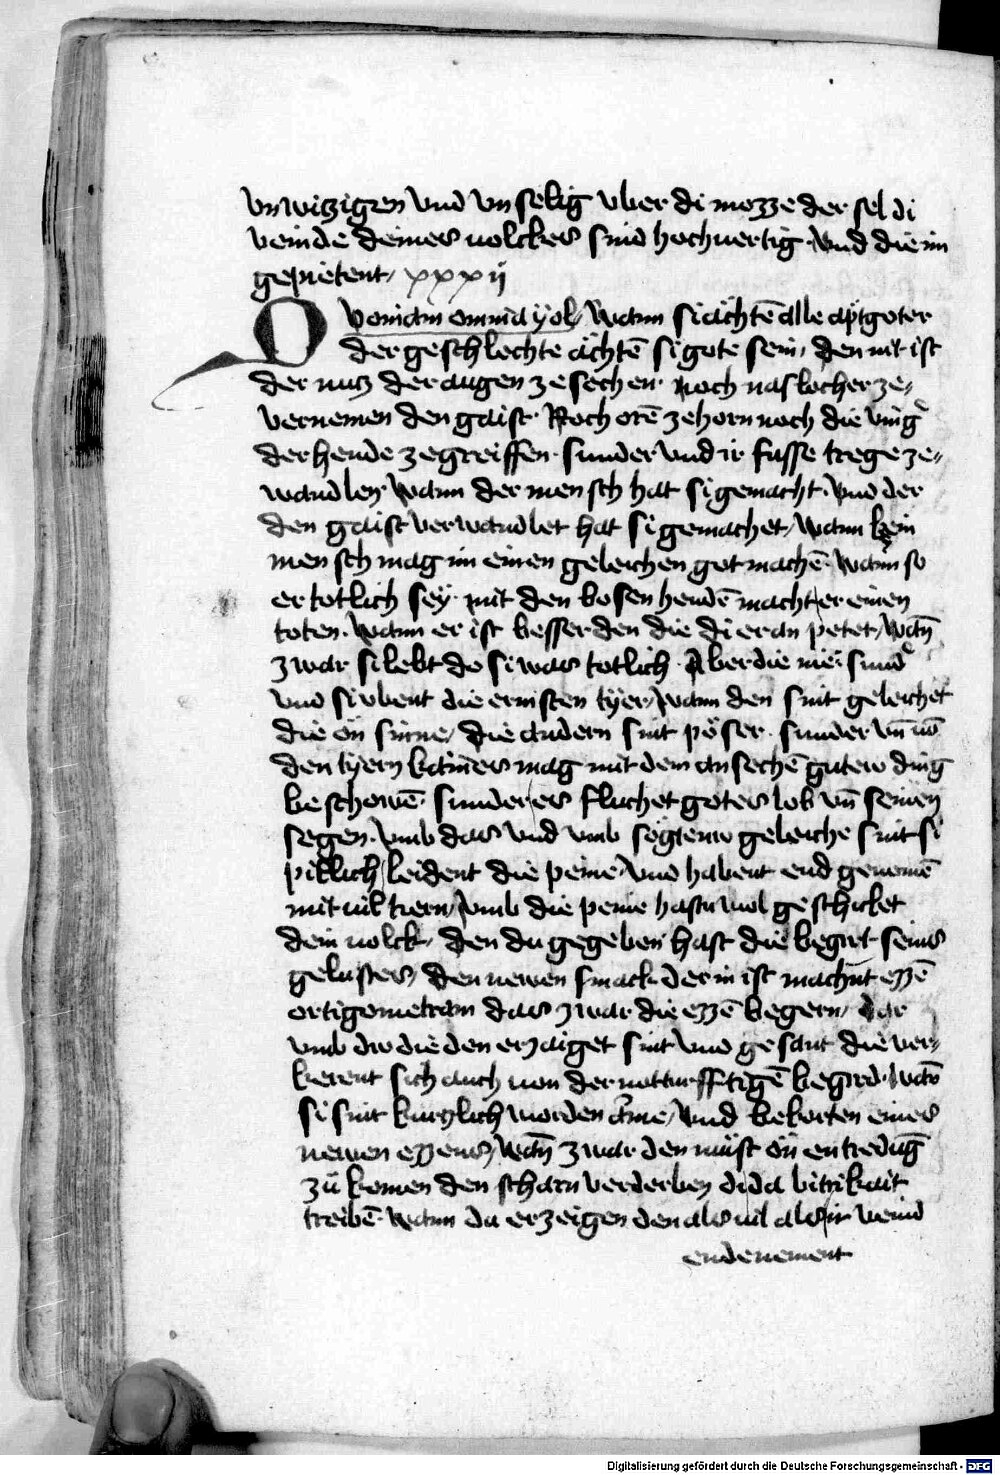 vnwitzigen vnd vnselig vber di mozze der sel di
veinde deines volckes sind hochuertig · vnd die im
gepietent / xxxij
Quoniam omnia ydol / Wann si achtē alle aptgoter
der geschlechte achtē si gote sein / den nit ist
der nutz der augen ze sechen · noch naslocher ze-
vernemen den gaist · Noch orē zehorn noch die ving
der hende zegreiffen · sunder vnd ir fusse trege ze-
wandlen · Wann der mensch hat si gemacht · vnd der
den gaist verwandlet hat si gemachet / Wann kein
mensch mag im einen geleichen got machē · wann so
er totlich sey · mit den bosen hendē macht er einen
toten · Wann er ist besser den die di er an petet / wan̄
zwar si lebt do si was totlich · Aber die nie sind
vnd si vbent die ermsten tyer / wann den sint geleichet
die on sinne / die andern sint pöser · sunder vn̄ vō
den tyern kaines mag mit dem ansechē guter ding
beschowē · sunder es fluchet gotes lob vn̄ seinen
segen · vmb das vnd vmb sögtenn geleiche sint si
pillich leident die peine / vnd habent end genomē
mit vil tiern / vmb die peine hastu wol geschicket
dein volck / den du gegeben hast die begirt seins
gelustes / den newen smack der in ist machūt ezzē
ortigometram das zwar die ezzē begern / dar
vmb dw die den erzaiget sint vnd gesant die ver-
kerent sich auch von der notturfftigē begird · wan̄
si sint kurczlich worden arme / vnd bekorten eines
newen ezzens / wan̄ zwar den must on entredūg
zü komen den scharn verderben di da bitrikait
treibē · wann da erzeigen den als vil als ir veind
endenement
Digitalisierung gefördert durch die Deutsche Forschungsgemeinschaft - DFG